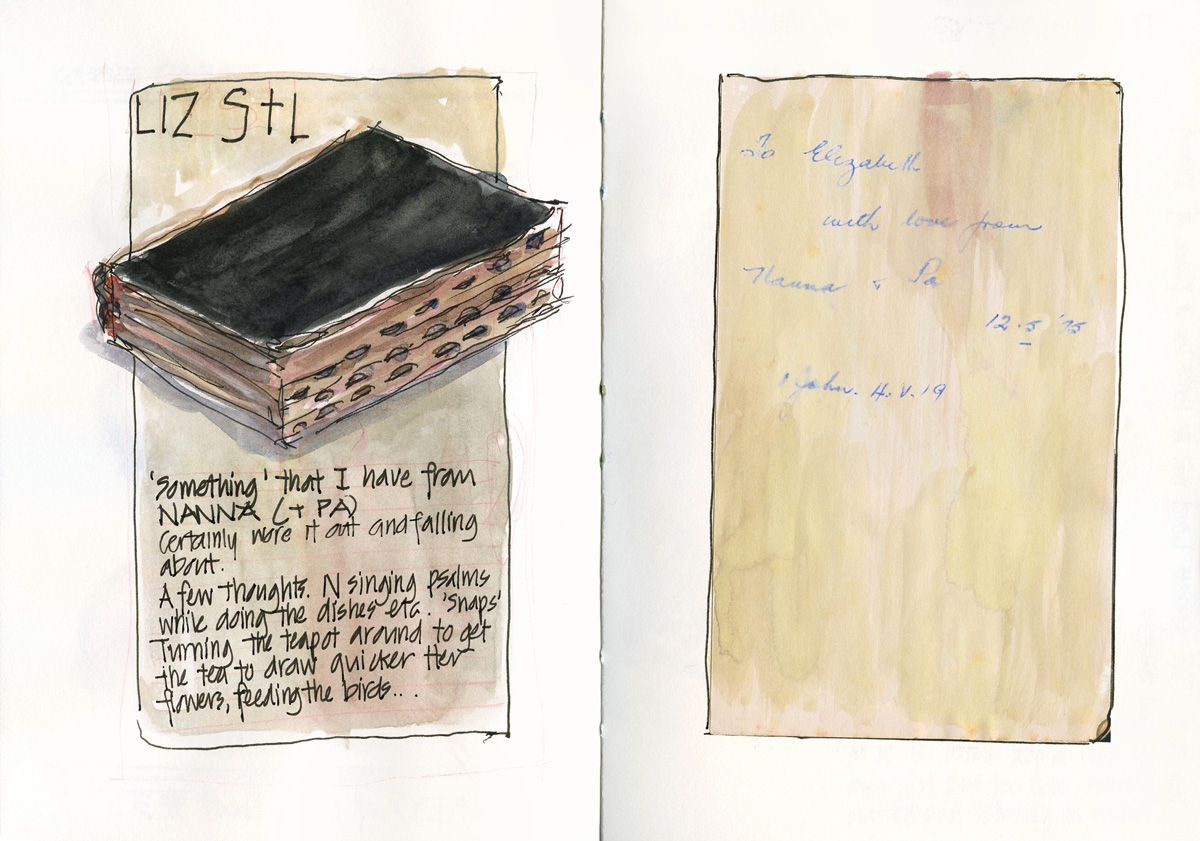 LIZ S+L
'Something' that I have from
NANNA (+ PA)
Certainly wore it out and falling
about.
A few thoughts. N singing psalms
while doing the dishes etc. 'Snaps'
Turning the teapot around to get
the tea to draw quicker Her
flowers, feeding the birds...
To Elizabeth
with love from
Nanna + Pa
12.5.'75
1 John. 4.V.19